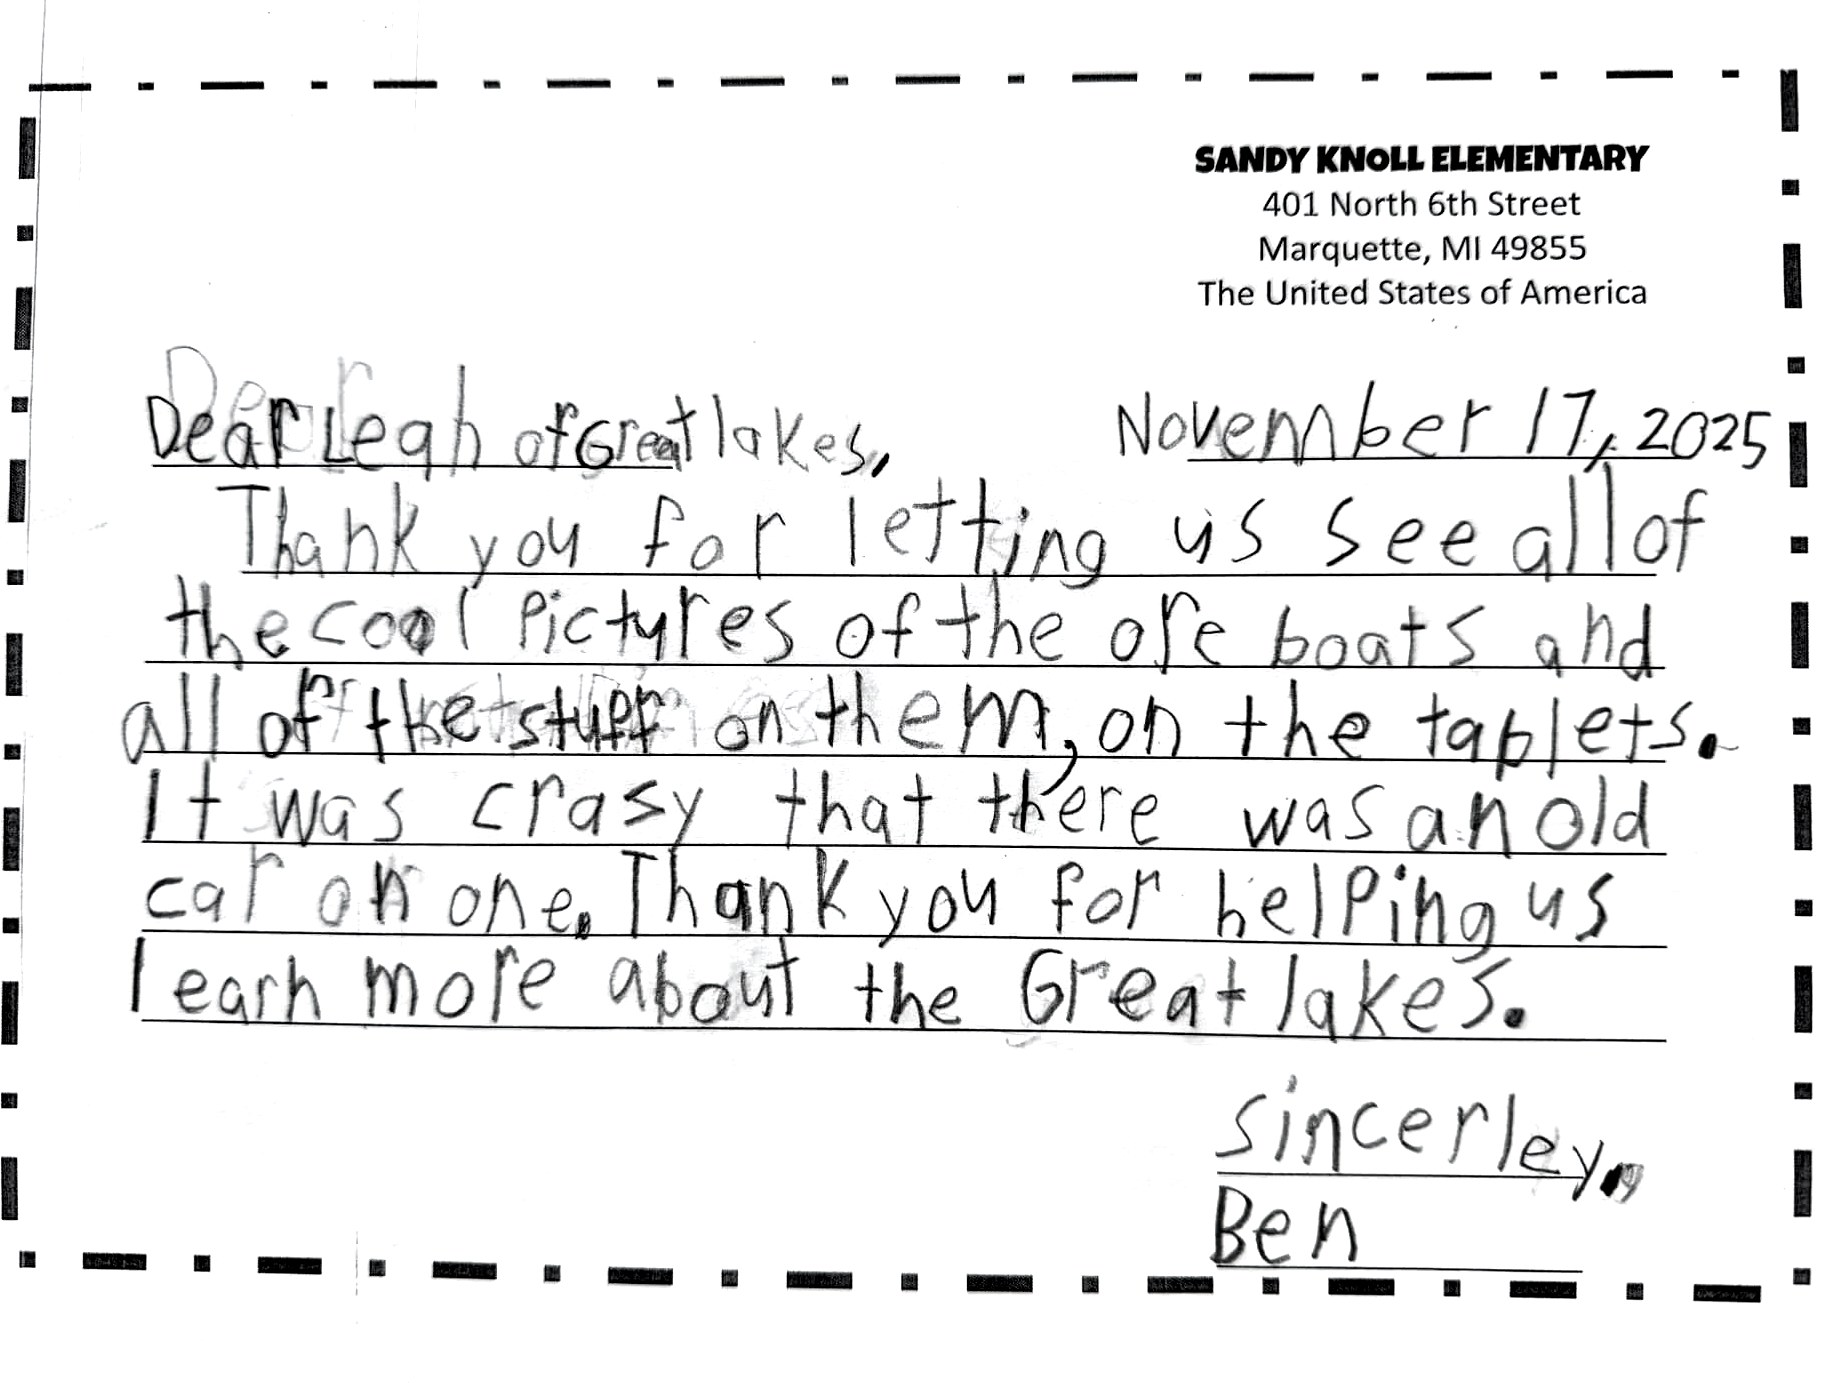 SANDY KNOLL ELEMENTARY
401 North 6th Street
Marquette, MI 49855
The United States of America
Dear Leah of Great lakes,
November 17, 2025
Thank you for letting us see all of
the cool Pictures of the ore boats and
all of the stuff on them, on the tablets.
It was crasy that there was an old
car on one. Thank you for helping us
learn more about the Great lakes.
sincerley,
Ben